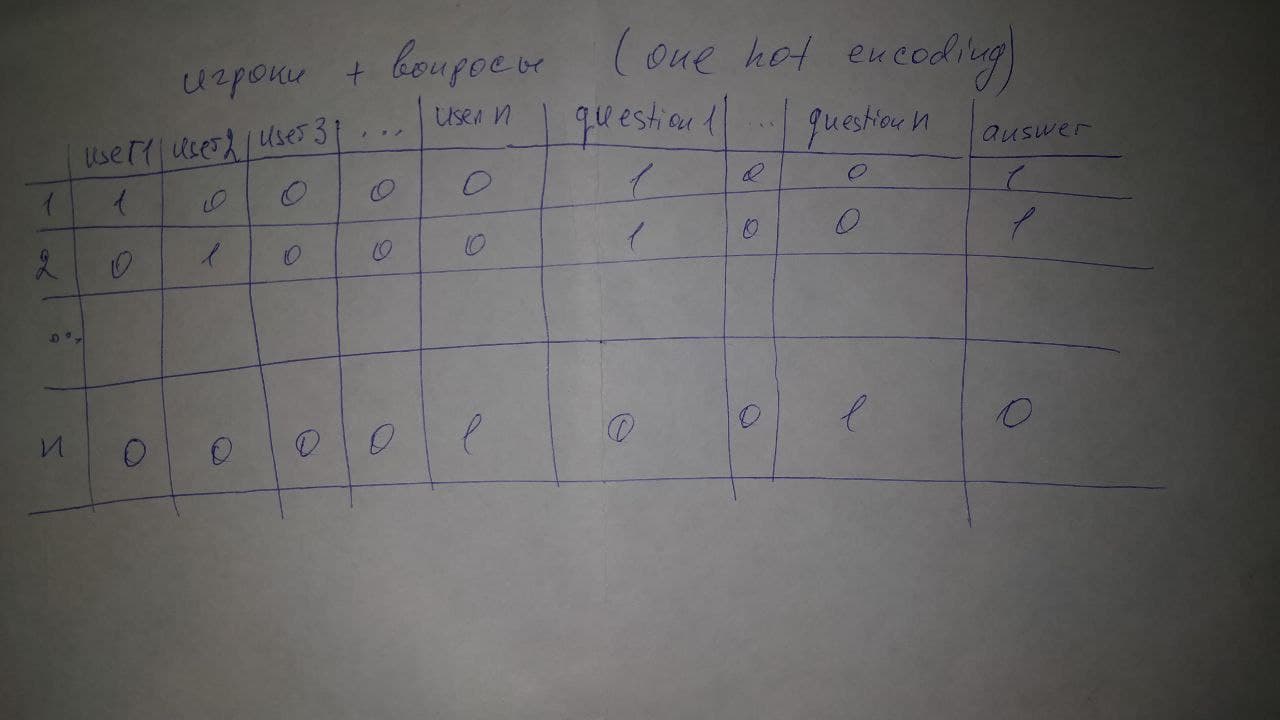 игроки + вопросы (one hot encoding)
user1 user2 user3 ... user n question1 ... question n answer
1 1 0 0 0 0 1 0 0 1
2 0 1 0 0 0 1 0 0 1
...
n 0 0 0 0 1 0 0 1 0